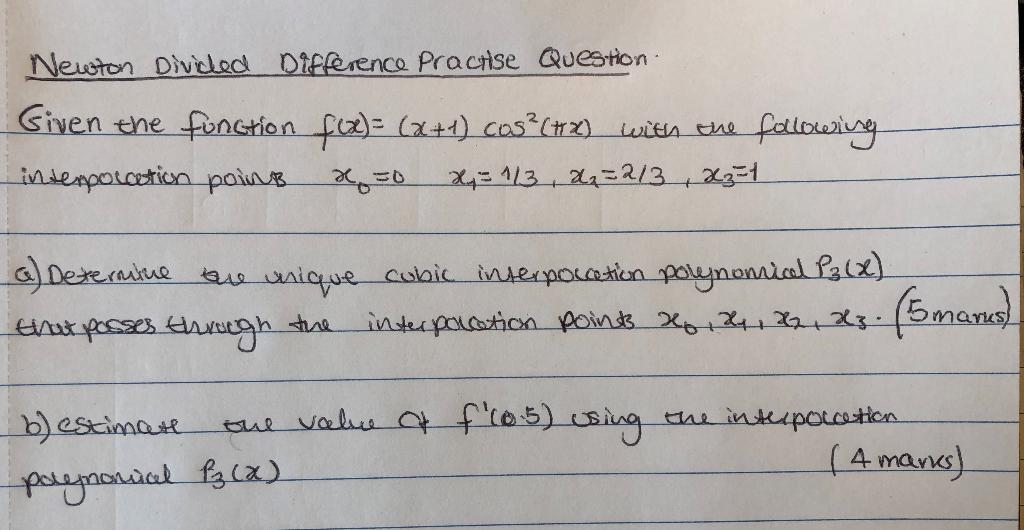 Newton Divided Difference Practise Question.
Given the function f(x)= (x+1) cos²(πx) with the following
interpolation points x₀=0 x₁= 1/3 , x₂=2/3 , x₃=1
a) Determine the unique cubic interpolation polynomial P₃(x)
that passes through the interpolation points x₀, x₁, x₂, x₃. (5marks)
b) estimate the value of f'(0.5) using the interpolation
polynomial P₃(x) (4 marks)